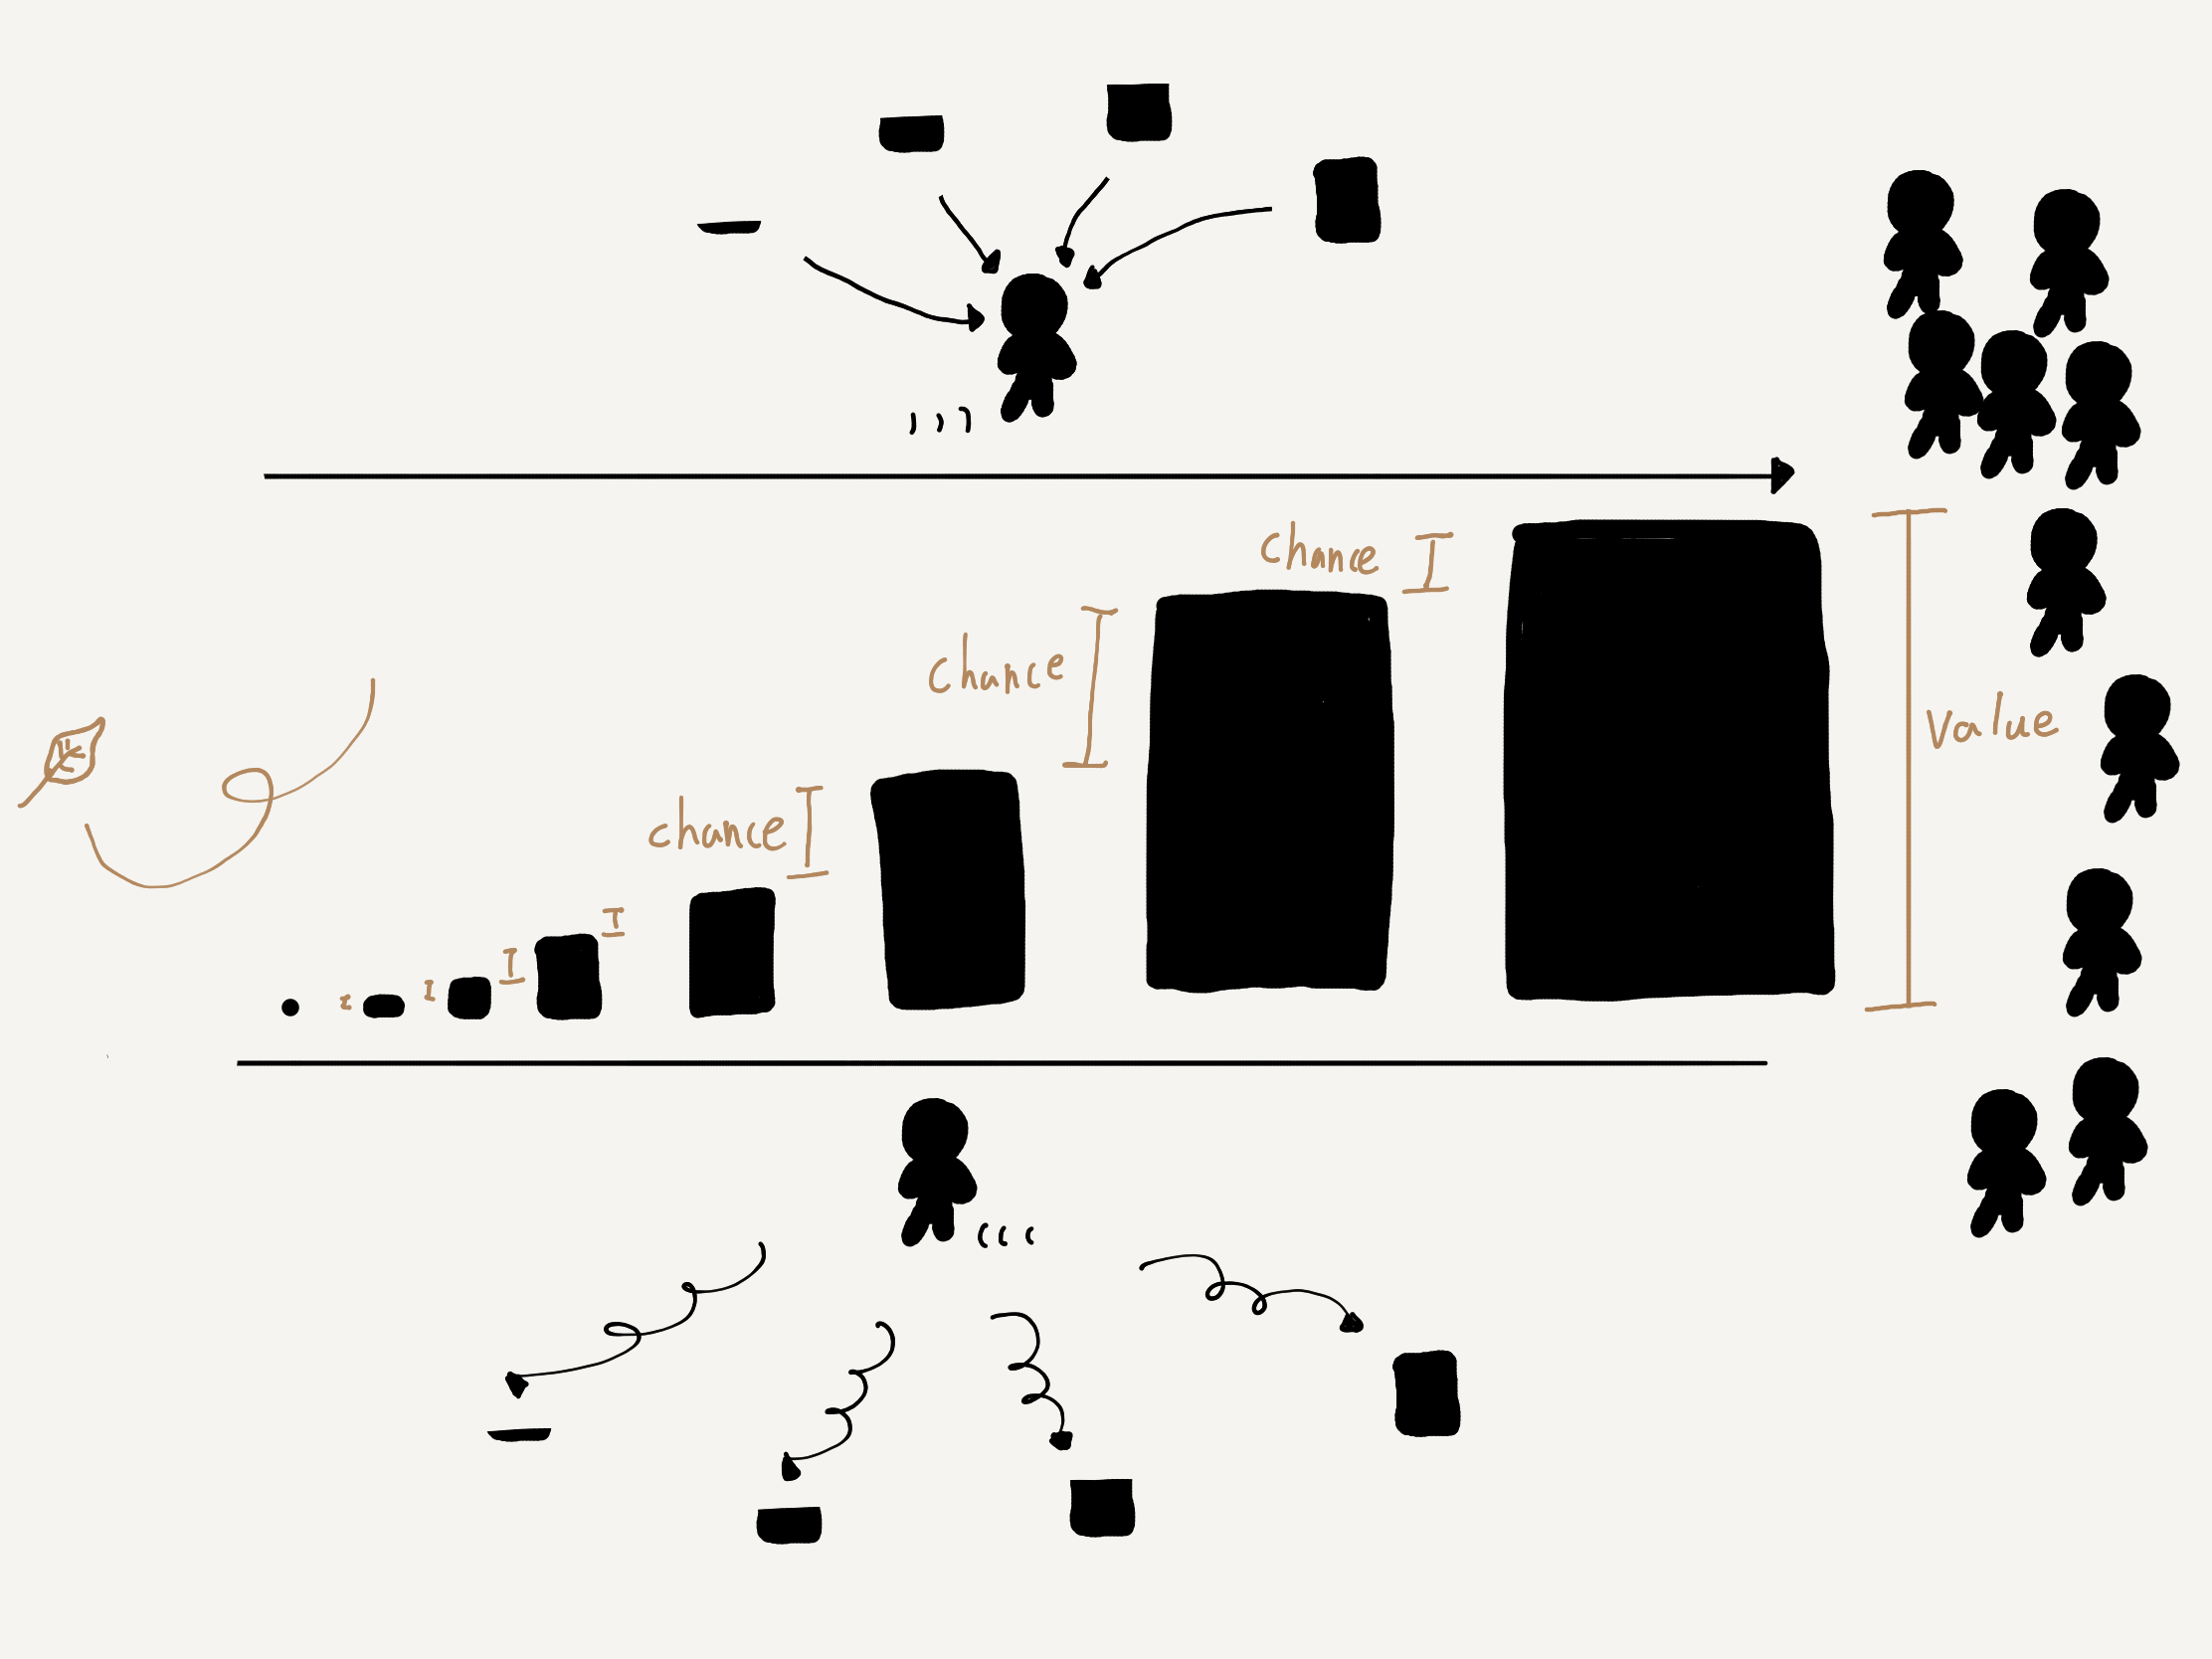 chance
chance
chance
Value